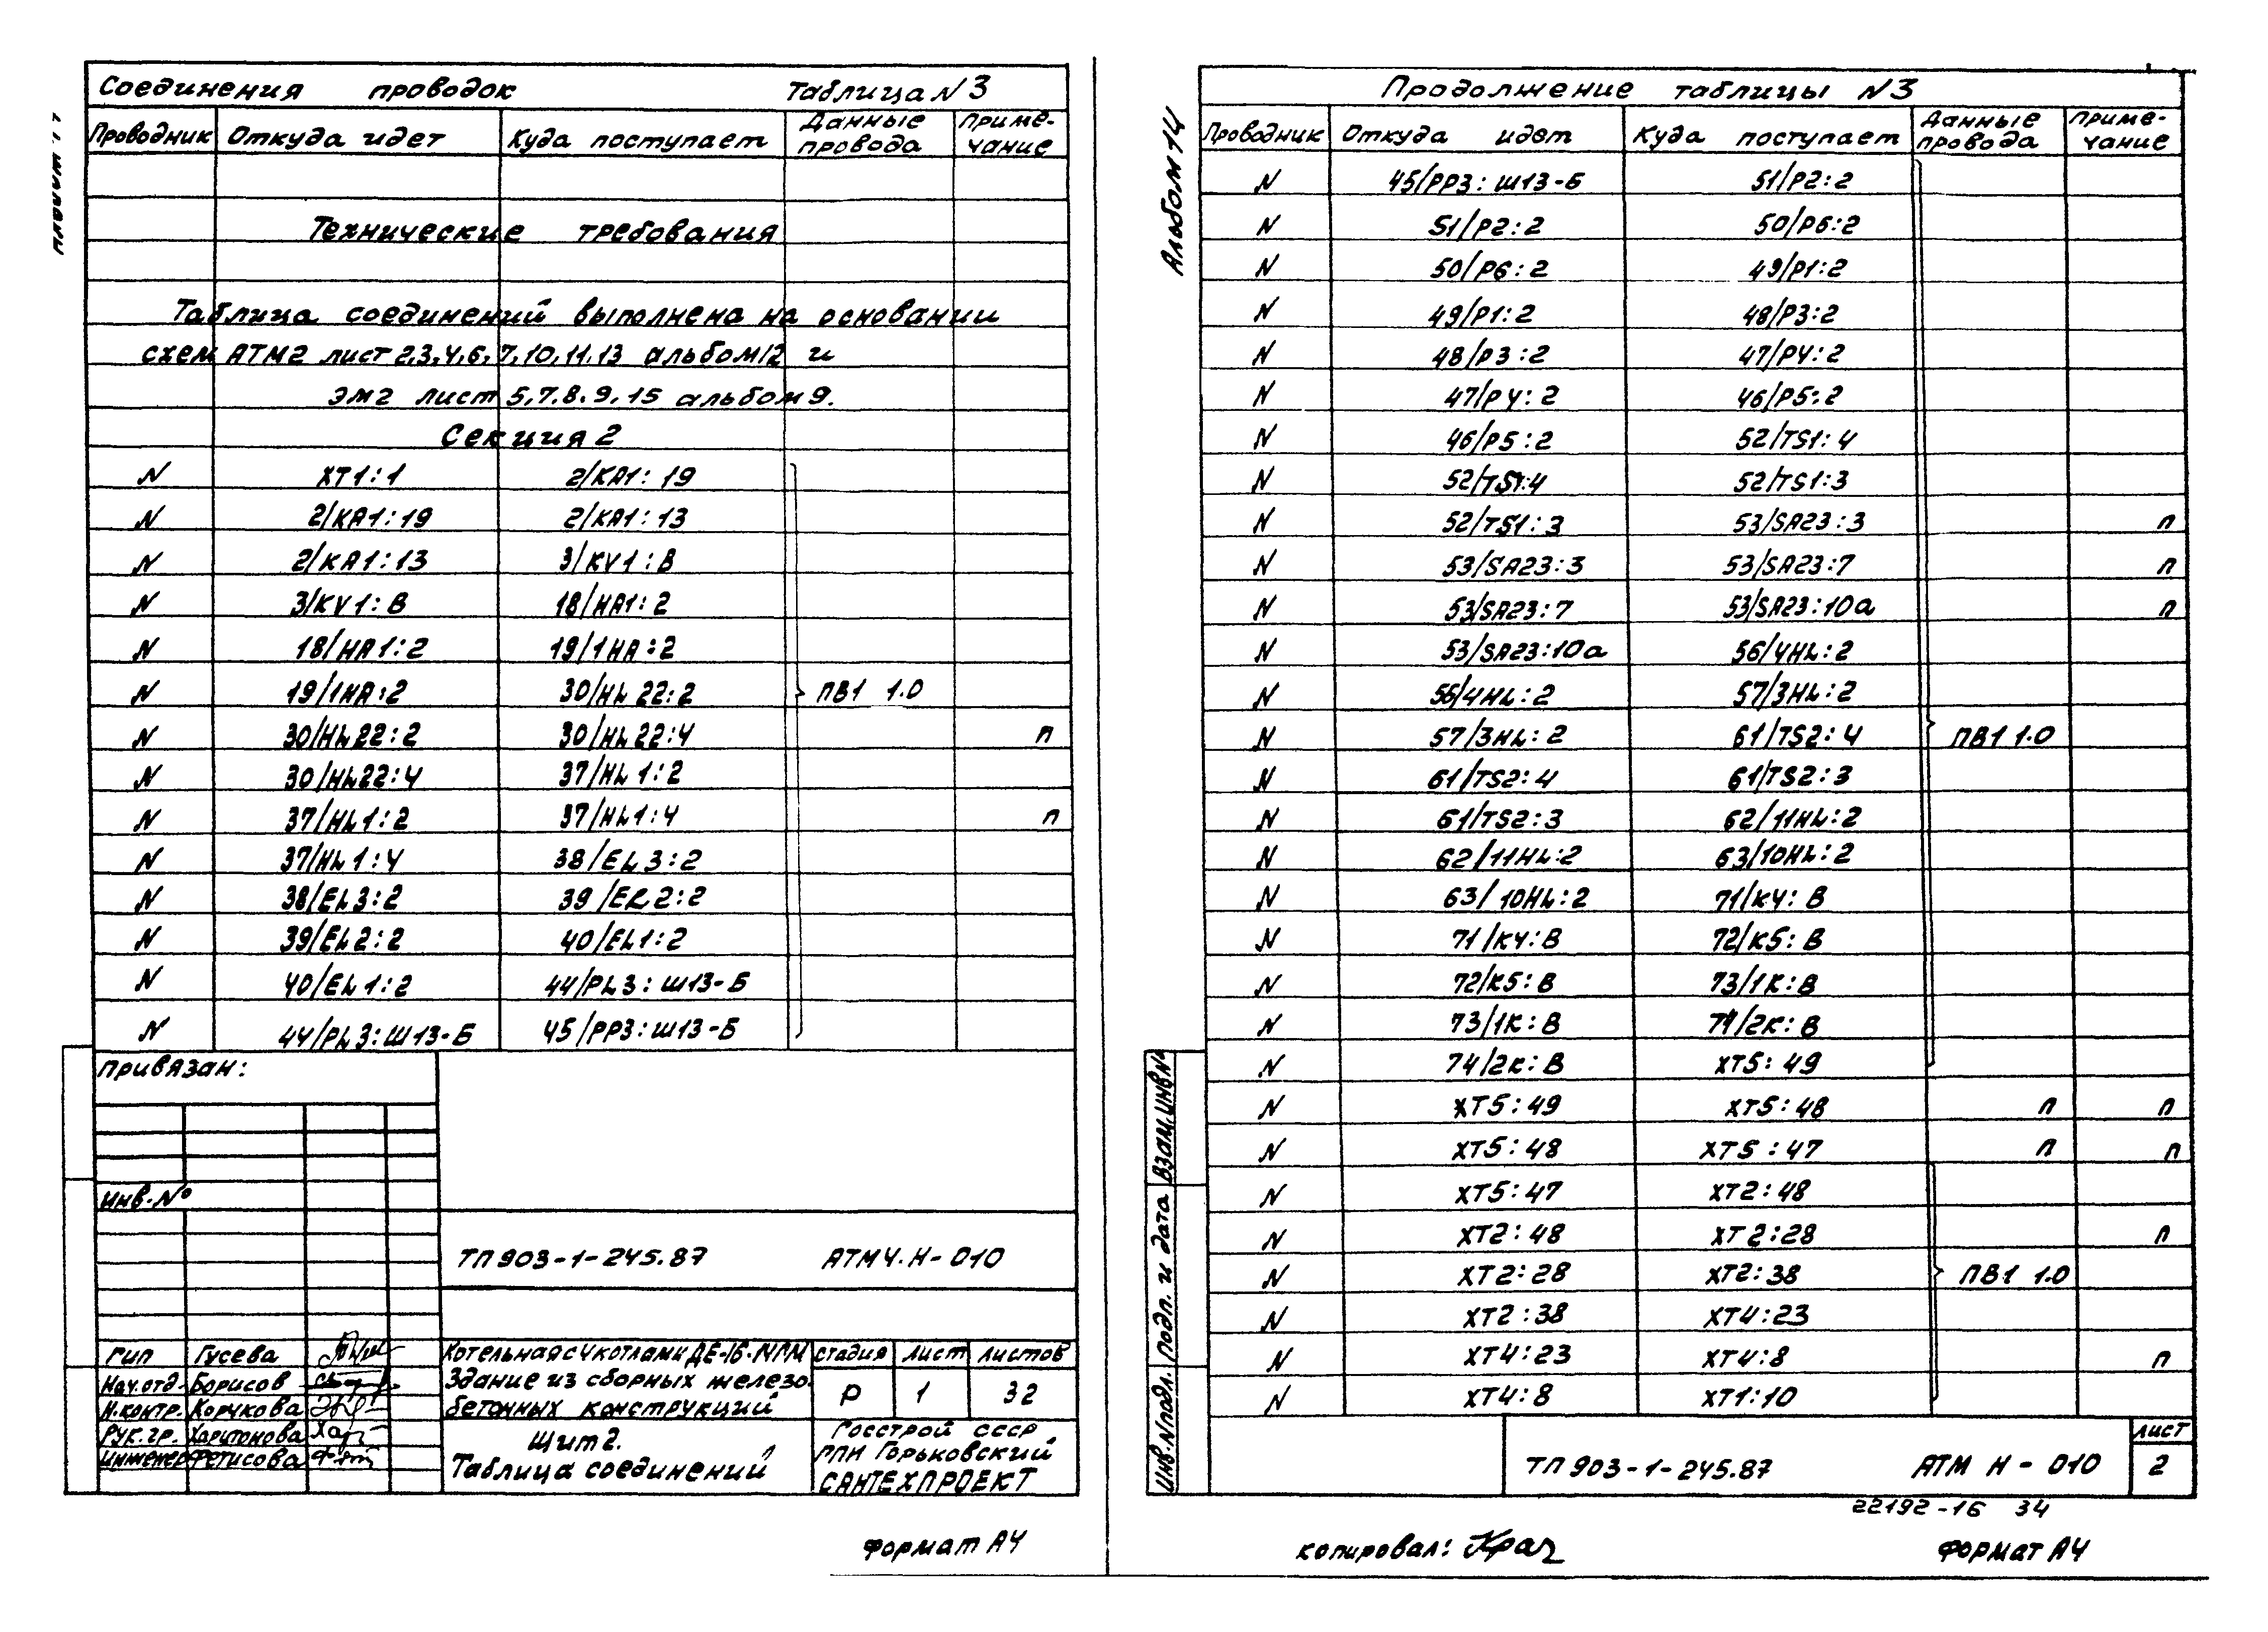 Соединения проводок Таблица N 3
Проводник Откуда идет Куда поступает Данные провода Примечание
Технические требования
Таблица соединений выполнена на основании
схем АТМ2 лист 2,3,4,6,7,10,11,13 альбом 12 и
ЭМ2 лист 5,7,8,9,15 альбом 9.
Секция 2
N XT1:1 2/KA1:19
N 2/KA1:19 2/KA1:13
N 2/KA1:13 3/KV1:B
N 3/KV1:B 18/HA1:2
N 18/HA1:2 19/1HA:2
N 19/1HA:2 30/HL22:2 ПВ1 1.0
N 30/HL22:2 30/HL22:4 п
N 30/HL22:4 37/HL1:2
N 37/HL1:2 37/HL1:4 п
N 37/HL1:4 38/EL3:2
N 38/EL3:2 39/EL2:2
N 39/EL2:2 40/EL1:2
N 40/EL1:2 44/PL3:Ш13-Б
N 44/PL3:Ш13-Б 45/PP3:Ш13-Б
Привязан:
Инв.№
ТП 903-1-245.87 АТМ4.Н-010
ГИП Гусева
Нач.отд. Борисов
Н.контр. Корчкова
Рук.гр. Харитонова
Инженер Фетисова
Котельная с 4 котлами ДЕ-16-14ГМ
Здание из сборных железо-
бетонных конструкций
Стадия Лист Листов
Р 1 32
Щит 2.
Таблица соединений
Госстрой СССР
ГПИ Горьковский
САНТЕХПРОЕКТ
Формат А4
Альбом 14
Продолжение таблицы N3
Проводник Откуда идет Куда поступает Данные провода Примечание
N 45/PP3:Ш13-Б 51/P2:2
N 51/P2:2 50/P6:2
N 50/P6:2 49/P1:2
N 49/P1:2 48/P3:2
N 48/P3:2 47/P4:2
N 47/P4:2 46/P5:2
N 46/P5:2 52/TS1:4
N 52/TS1:4 52/TS1:3
N 52/TS1:3 53/SA23:3 п
N 53/SA23:3 53/SA23:7 п
N 53/SA23:7 53/SA23:10а п
N 53/SA23:10а 56/4HL:2
N 56/4HL:2 57/3HL:2
N 57/3HL:2 61/TS2:4 ПВ1 1.0
N 61/TS2:4 61/TS2:3
N 61/TS2:3 62/11HL:2
N 62/11HL:2 63/10HL:2
N 63/10HL:2 71/K4:B
N 71/K4:B 72/K5:B
N 72/K5:B 73/1K:B
N 73/1K:B 74/2K:B
N 74/2K:B XT5:49
N XT5:49 XT5:48 п п
N XT5:48 XT5:47 п п
N XT5:47 XT2:48
N XT2:48 XT2:28 п
N XT2:28 XT2:38 ПВ1 1.0
N XT2:38 XT4:23
N XT4:23 XT4:8 п
N XT4:8 XT1:10
Инв.N подл. Подп. и дата Взам.инв.N
ТП 903-1-245.87 АТМ Н-010
Лист
2
22192-16 34
Копировал: Крач
Формат А4